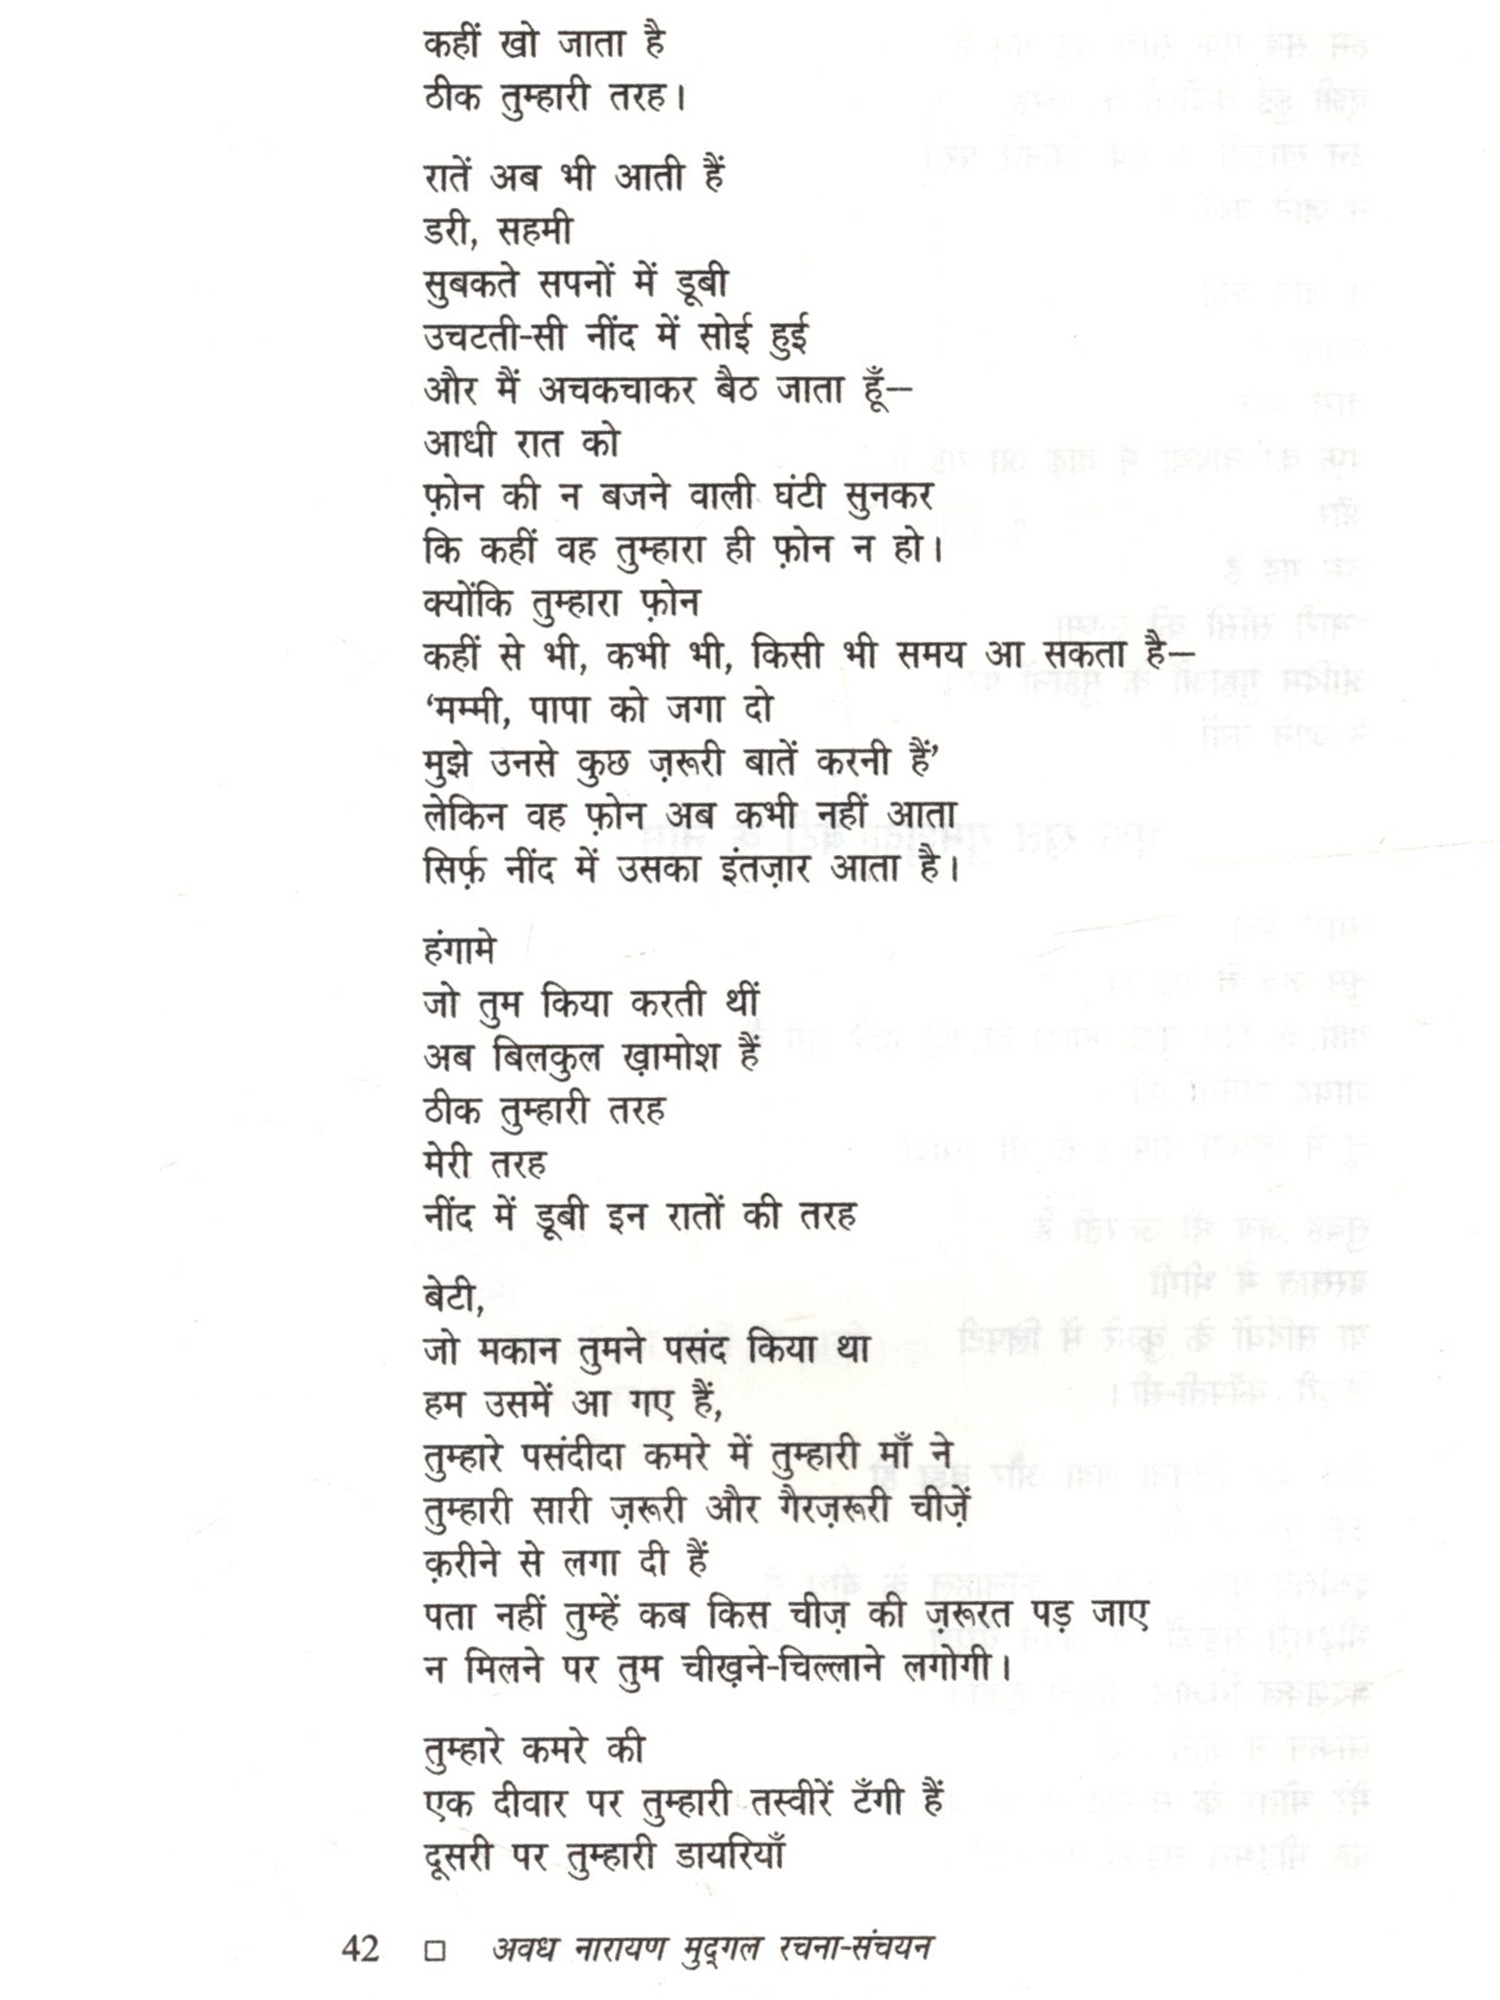 कहीं खो जाता है
ठीक तुम्हारी तरह।
रातें अब भी आती हैं
डरी, सहमी
सुबकते सपनों में डूबी
उचटती-सी नींद में सोई हुई
और मैं अचकचाकर बैठ जाता हूँ—
आधी रात को
फ़ोन की न बजने वाली घंटी सुनकर
कि कहीं वह तुम्हारा ही फ़ोन न हो।
क्योंकि तुम्हारा फ़ोन
कहीं से भी, कभी भी, किसी भी समय आ सकता है—
‘मम्मी, पापा को जगा दो
मुझे उनसे कुछ ज़रूरी बातें करनी हैं’
लेकिन वह फ़ोन अब कभी नहीं आता
सिर्फ़ नींद में उसका इंतज़ार आता है।
हंगामे
जो तुम किया करती थीं
अब बिलकुल ख़ामोश हैं
ठीक तुम्हारी तरह
मेरी तरह
नींद में डूबी इन रातों की तरह
बेटी,
जो मकान तुमने पसंद किया था
हम उसमें आ गए हैं,
तुम्हारे पसंदीदा कमरे में तुम्हारी माँ ने
तुम्हारी सारी ज़रूरी और गैरज़रूरी चीज़ें
क़रीने से लगा दी हैं
पता नहीं तुम्हें कब किस चीज़ की ज़रूरत पड़ जाए
न मिलने पर तुम चीख़ने-चिल्लाने लगोगी।
तुम्हारे कमरे की
एक दीवार पर तुम्हारी तस्वीरें टँगी हैं
दूसरी पर तुम्हारी डायरियाँ
42 □ अवध नारायण मुद्‌गल रचना-संचयन